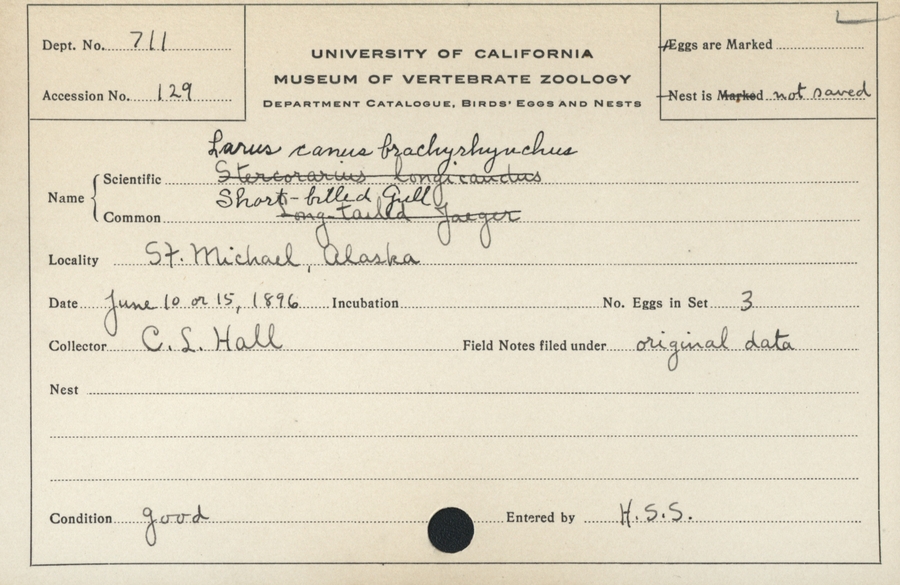 Dept. No. 711
UNIVERSITY OF CALIFORNIA
MUSEUM OF VERTEBRATE ZOOLOGY
DEPARTMENT CATALOGUE, BIRDS' EGGS AND NESTS
Eggs are Marked
Accession No. 129
Nest is Marked not saved
Larus canus brachyrhynchus
Name
Scientific Stercorarius longicaudus
Short-billed Gull
Common Long-tailed Jaeger
Locality St. Michael, Alaska
Date June 10 or 15, 1896 Incubation No. Eggs in Set 3
Collector C. L. Hall Field Notes filed under original data
Nest
Condition good Entered by H.S.S.